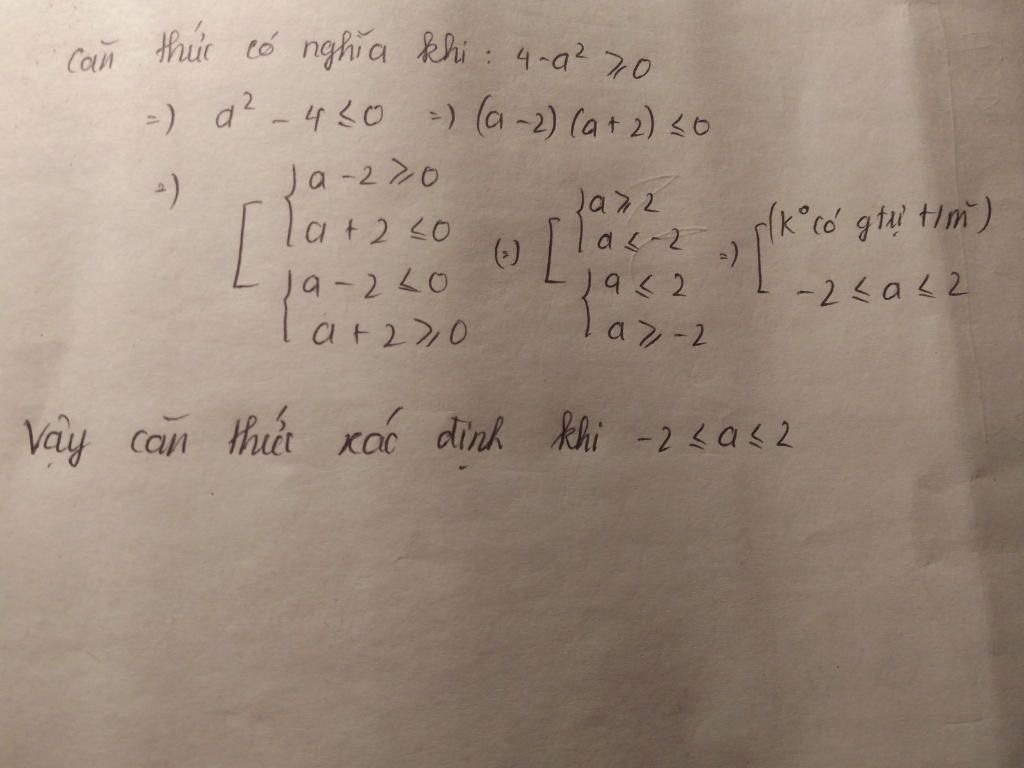 căn thức có nghĩa khi : 4-a² ≥ 0
=) a² - 4 ≤ 0 =) (a-2) (a+2) ≤ 0
=) [ { a - 2 ≥ 0
a + 2 ≤ 0
{ a - 2 ≤ 0
a + 2 ≥ 0
(=) [ { a ≥ 2
a ≤ -2
{ a ≤ 2
a ≥ -2
=) [ (k° có gtrị t/m)
-2 ≤ a ≤ 2
Vậy căn thức xác định khi -2 ≤ a ≤ 2